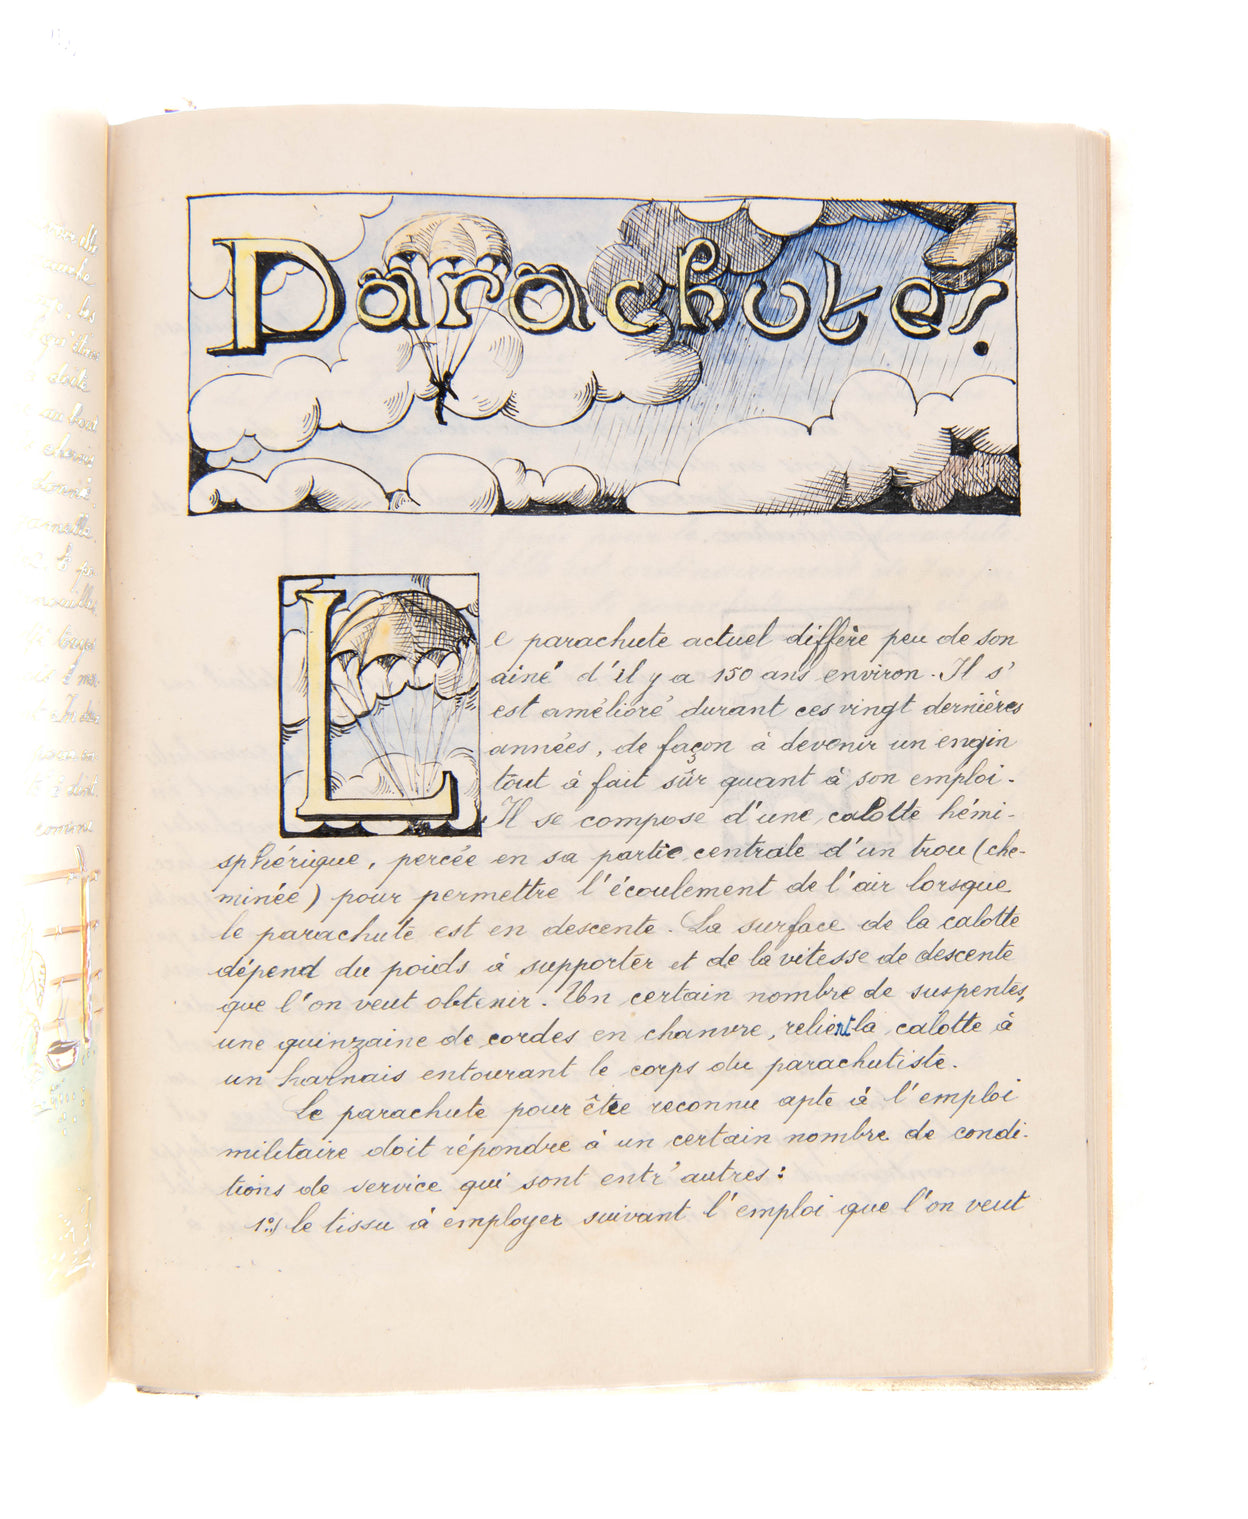 Parachutes.
Le parachute actuel diffère peu de son
ainé d'il y a 150 ans environ. Il s'
est amélioré durant ces vingt dernières
années, de façon à devenir un engin
tout à fait sûr quant à son emploi.
Il se compose d'une calotte hémi-
sphérique, percée en sa partie centrale d'un trou (che-
minée) pour permettre l'écoulement de l'air lorsque
le parachute est en descente. La surface de la calotte
dépend du poids à supporter et de la vitesse de descente
que l'on veut obtenir. Un certain nombre de suspentes,
une quinzaine de cordes en chanvre, relient la calotte à
un harnais entourant le corps du parachutiste.
Le parachute pour être reconnu apte à l'emploi
militaire doit répondre à un certain nombre de condi-
tions de service qui sont entr'autres :
1º) le tissu à employer suivant l'emploi que l'on veut